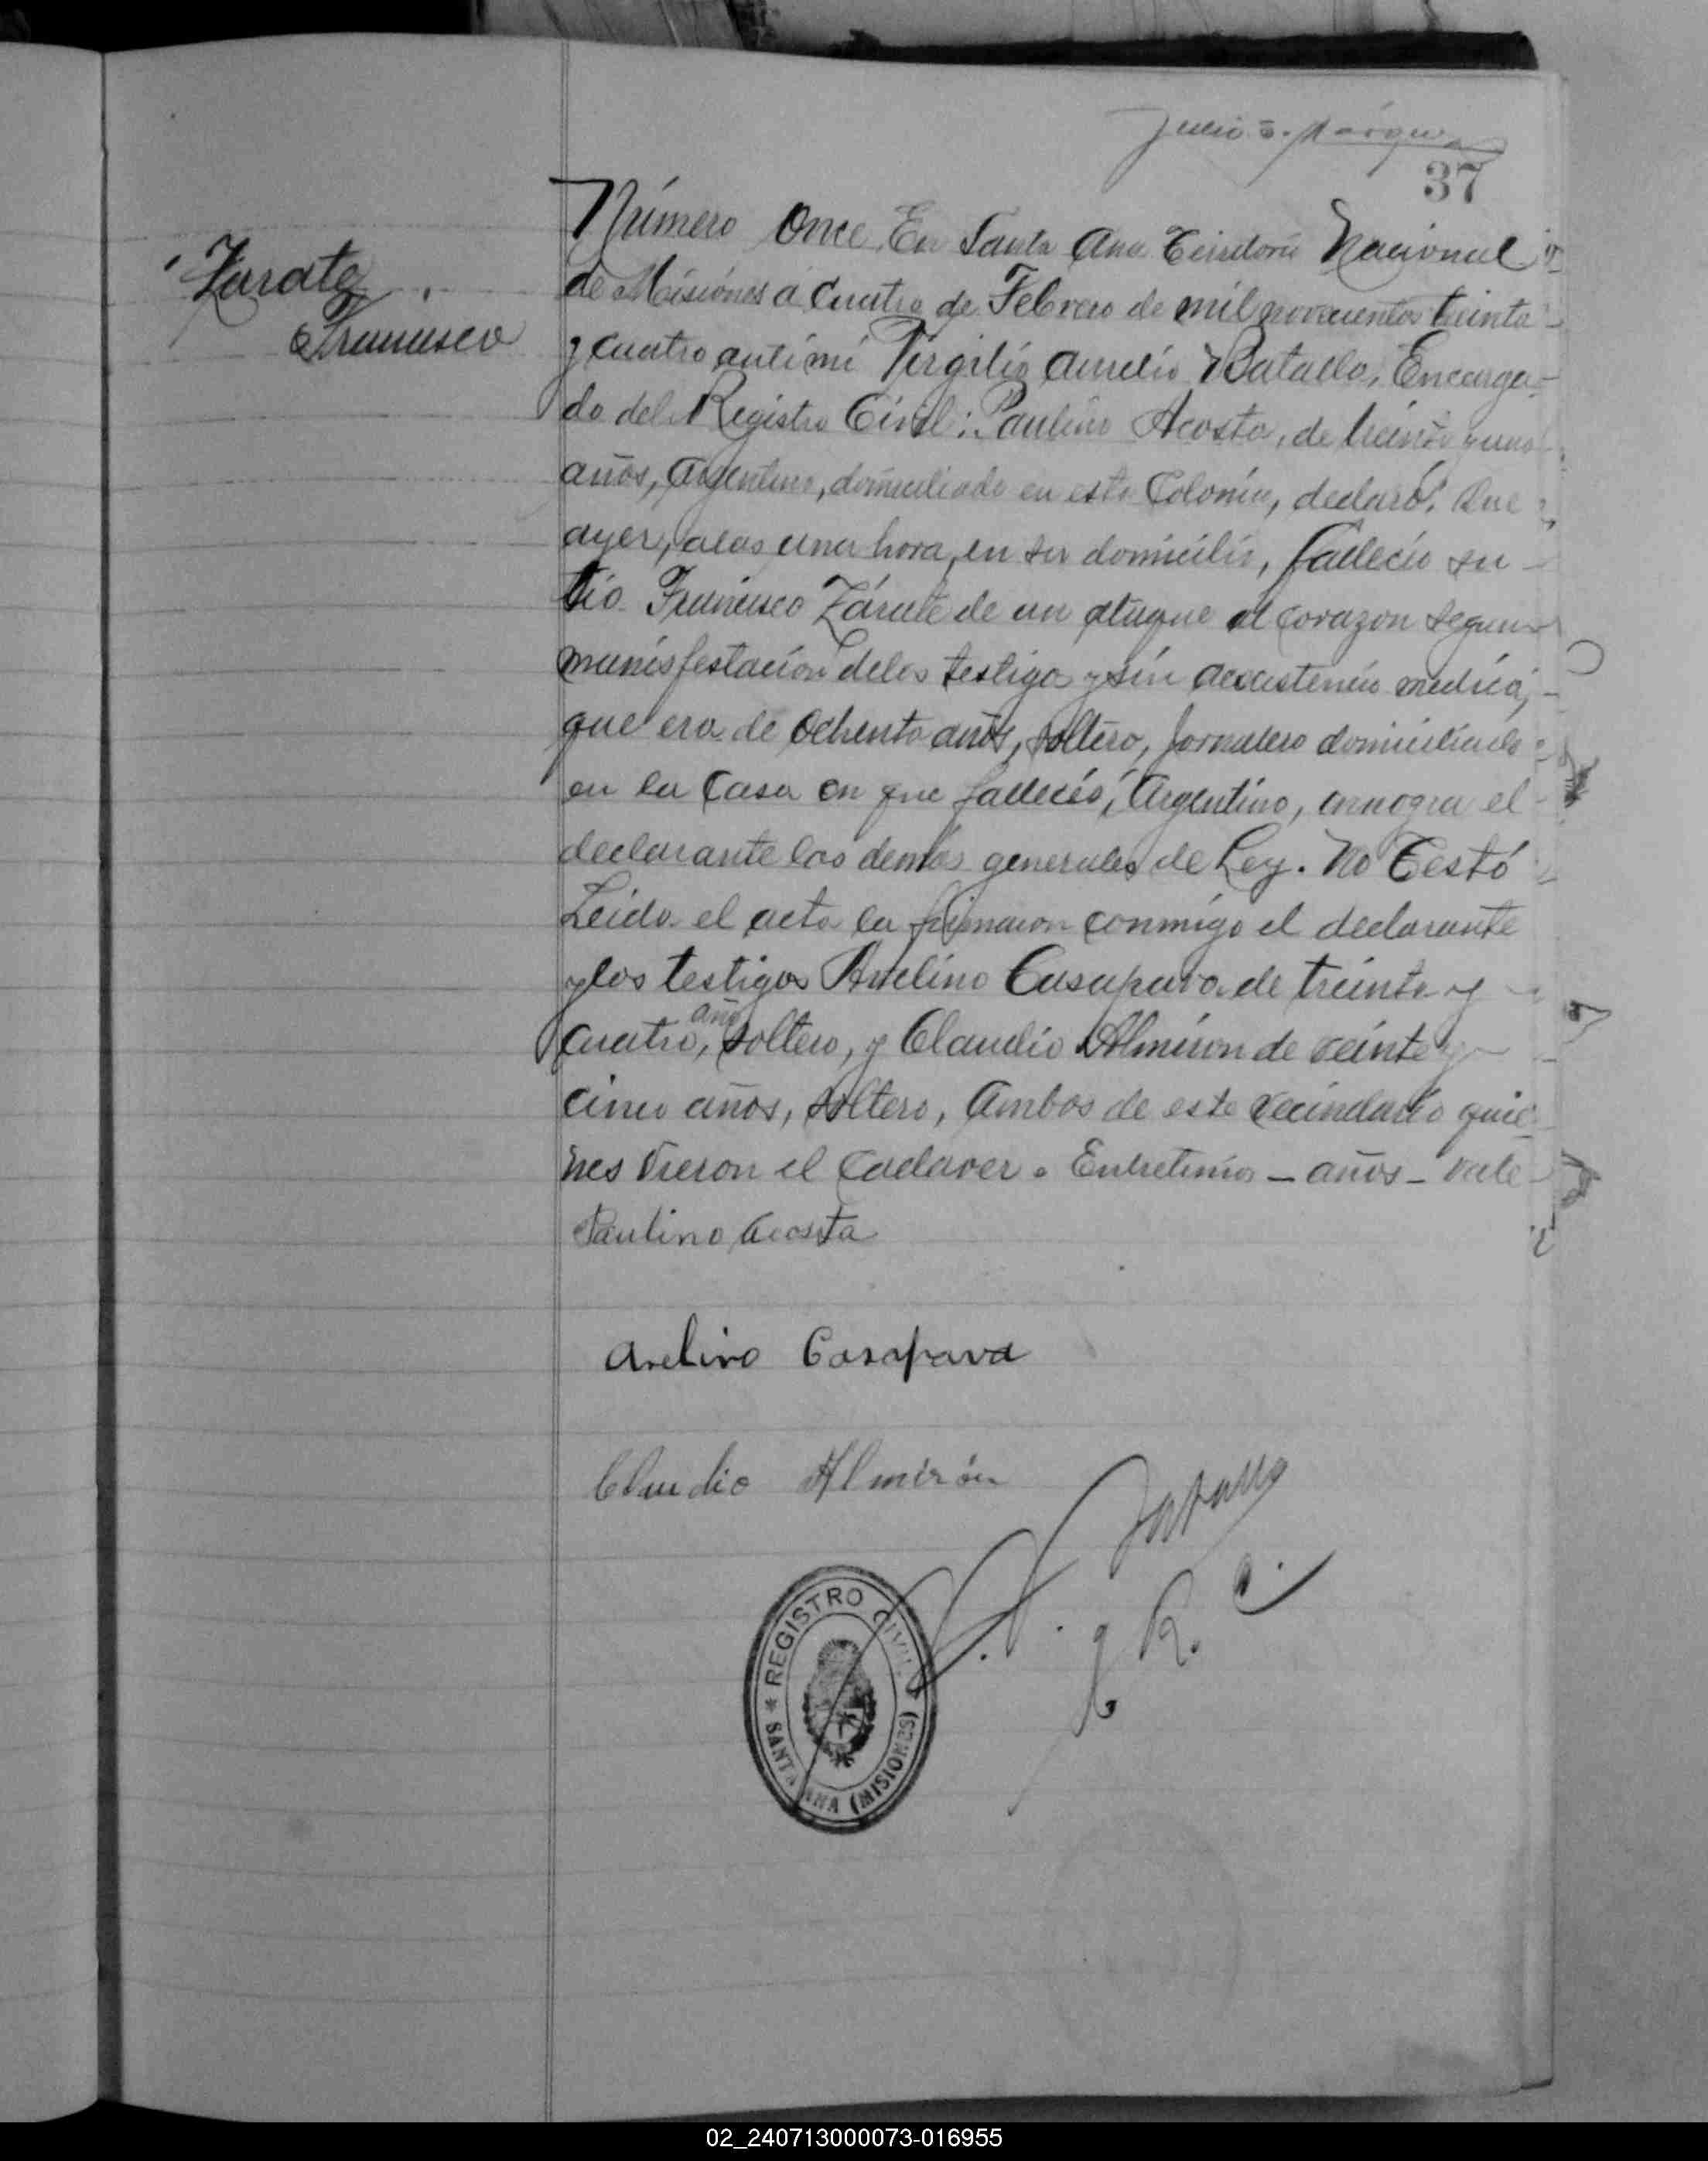 Julio
37
Zarate
Francisco
Número Once. En Santa Ana Territorio Nacional
de Misiones á cuatro de Febrero de mil novecientos treinta
y cuatro anti mi Virgilio Aurelio Batalla, Encarga-
do del Registro Civil: Paulino Acosta, de treinta y uno
años, Argentino, domiciliado en esta Colonia, declaró: Que
ayer, a las una hora, en su domicilio, fallecio su
tio Francisco Zárate de un ataque al corazon segun
manisfestacion de los testigo y sin asistencia medica,
que era de ochenta años, soltero, jornalero domiciliado
en la casa en que falleció, Argentino, innogra el
declarante las demás generales de Ley. No Testó
Leida el acta la firmaron conmigo el declarante
y los testigos Avelino Casapava de treinta y
años
cuatro, soltero, y Claudio Almiron de veinte y
cinco años, soltero, ambos de este vecindario quie-
nes vieron el cadaver. Entrelineas - años - vale
Paulino Acosta
Avelino Casapava
Claudio Almirón
REGISTRO CIVIL
SANTA ANA (MISIONES)
02_240713000073-016955